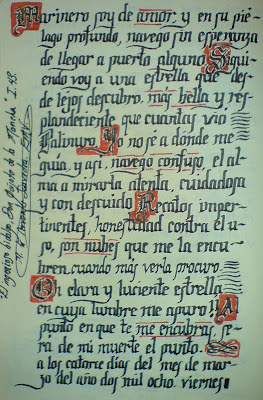 Marinero soy de amor, y en su pié-
lago profundo, navego sin esperanza
de llegar a puerto alguno. Sigui-
endo voy a una estrella que des-
de lejos descubro, más bella y res-
plandeciente que cuantas vio
Palinuro. Yo no sé a dónde me
guía, y así, navego confuso, el al-
ma a mirarla atenta, cuidadosa
y con descuido. Recatos imper-
tinentes, honestidad contra el u-
so, son nubes que me la encu-
bren cuando más verla procuro.
Oh clara y luciente estrella
en cuya lumbre me apuro! A
punto en que te me encubras, se-
rá de mi muerte el punto.
a los catorce días del mes de mar-
zo del año dos mil ocho. viernes
El ingenioso hidalgo Don Quijote de la Mancha. I. 43.